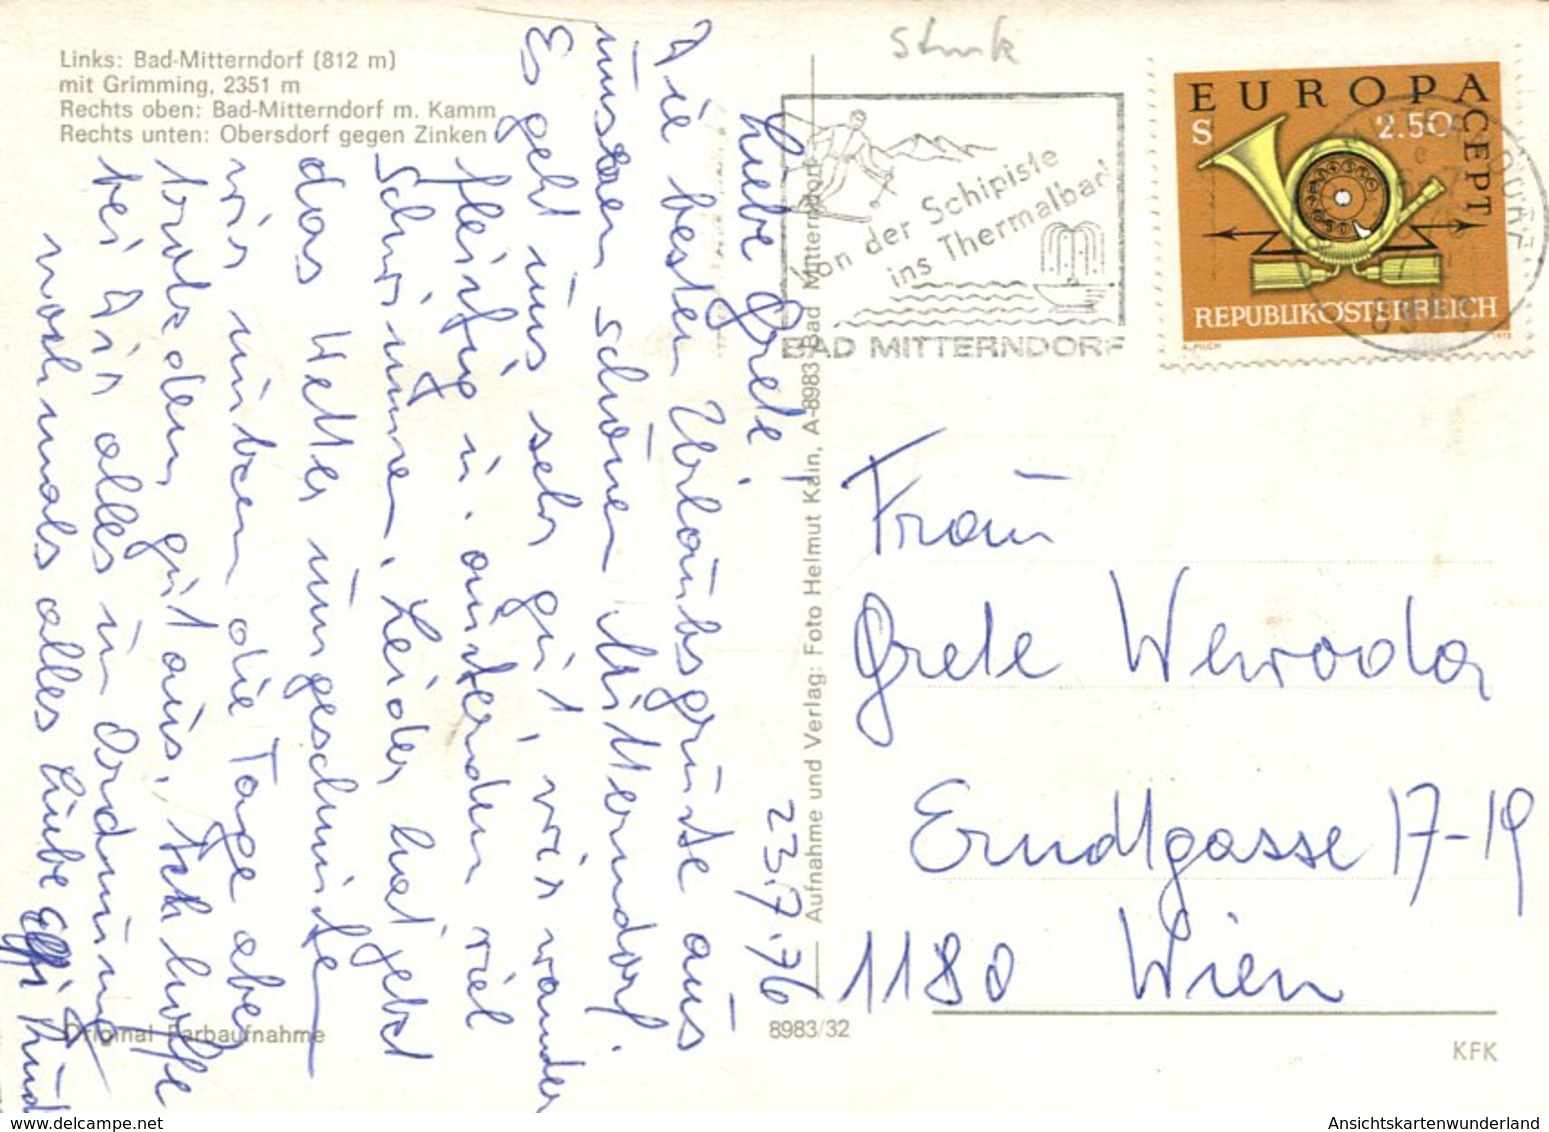 Links: Bad-Mitterndorf (812 m)
mit Grimming, 2351 m
Rechts oben: Bad-Mitterndorf m. Kamm
Rechts unten: Obersdorf gegen Zinken
Von der Schipiste
ins Thermalbad
BAD MITTERNDORF
EUROPA
CEPT
S 2.50
REPUBLIK ÖSTERREICH
23.7.76
Liebe Grete!
Die besten Urlaubsgrüße aus
unserem schönen Mitterndorf.
Es geht uns sehr gut, wir wandern
fleißig u. außerdem viel
Schwimmen. Leider hat jetzt
das Wetter umgeschmissen
wir nützen die Tage aber
trotzdem gut aus. Ich hoffe
bei Dir alles in Ordnung
nochmals alles Liebe Effi
Frau
Grete Wewoda
Erndtgasse 17-19
1180 Wien
Aufnahme und Verlag: Foto Helmut Kain, A-8983 Bad Mitterndorf
Original Farbaufnahme
8983/32
KFK
www.delcampe.net
Ansichtskartenwunderland